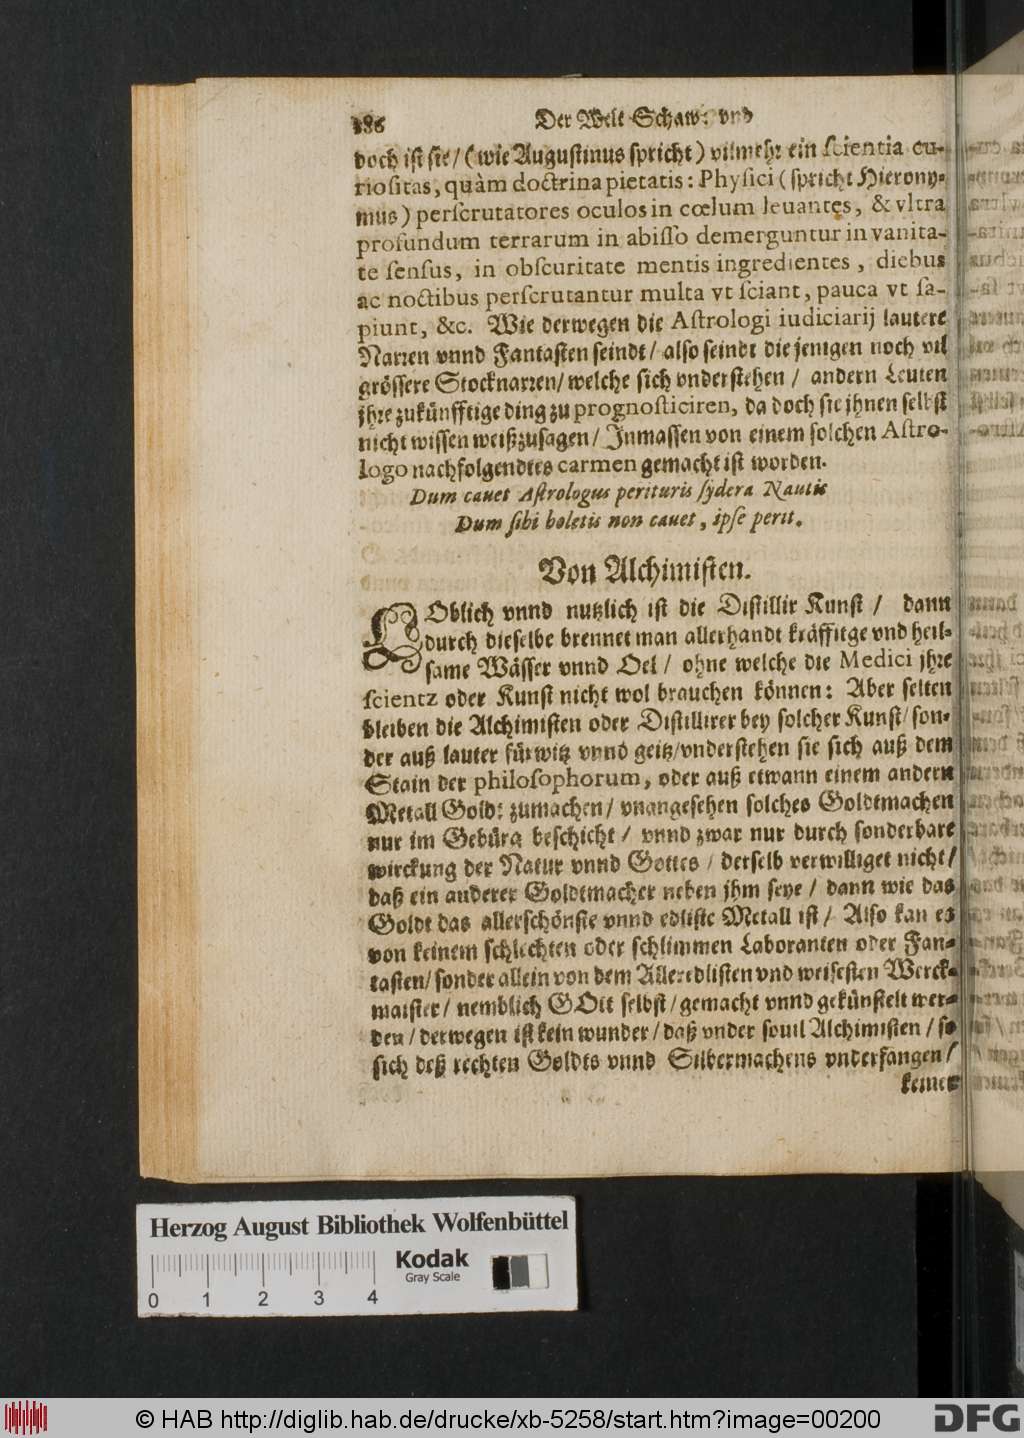 186 Der Welt Schaw: vnd
doch ist sie/ (wie Augustinus spricht) vilmehr ein scientia cu-
riositas, quàm doctrina pietatis: Physici (spricht Hierony-
mus) perscrutatores oculos in cœlum leuantes, & vltra
profundum terrarum in abisso demerguntur in vanita-
te sensus, in obscuritate mentis ingredientes, diebus
ac noctibus perscrutantur multa vt sciant, pauca vt sa-
piunt, &c. Wie derwegen die Astrologi iudiciarij lautere
Narren vnnd Fantasten seindt/ also seindt die jenigen noch vil
grössere Stocknarren/ welche sich vnderstehen / andern Leuten
jhre zukünfftige ding zu prognosticiren, da doch sie jhnen selbst
nicht wissen weißzusagen/ Jnmassen von einem solchen Astro-
logo nachfolgendtes carmen gemacht ist worden.
Dum cauet Astrologus perituris sydera Nautis
Dum sibi boletis non cauet, ipse perit.
Von Alchimisten.
LOblich vnnd nutzlich ist die Distillir Kunst / dann
durch dieselbe brennet man allerhandt kräffitge vnd heil-
same Wässer vnnd Oel / ohne welche die Medici jhre
scientz oder Kunst nicht wol brauchen können: Aber selten
bleiben die Alchimisten oder Distillirer bey solcher Kunst/ son-
der auß lauter fürwitz vnnd geitz/ vnderstehen sie sich auß dem
Stain der philosophorum, oder auß etwann einem andern
Metall Goldt zumachen/ vnangesehen solches Goldtmachen
nur im Gebürg beschicht / vnnd zwar nur durch sonderbare
wirckung der Natur vnnd Gottes / derselb verwilliget nicht/
daß ein anderer Goldtmacher neben jhm seye / dann wie das
Goldt das allerschönste vnnd edliste Metall ist / Also kan es
von keinem schlechten oder schlimmen Laboranten oder Fan-
tasten/ sonder allein von dem Alleredlisten vnd weisesten Werck-
maister / nemblich GOtt selbst / gemacht vnnd gekünstelt wer-
den / derwegen ist kein wunder / daß vnder souil Alchimisten / so
sich deß rechten Goldts vnnd Silbermachens vnderfangen/
keiner
Herzog August Bibliothek Wolfenbüttel
Kodak
Gray Scale
0 1 2 3 4
© HAB http://diglib.hab.de/drucke/xb-5258/start.htm?image=00200
DFG